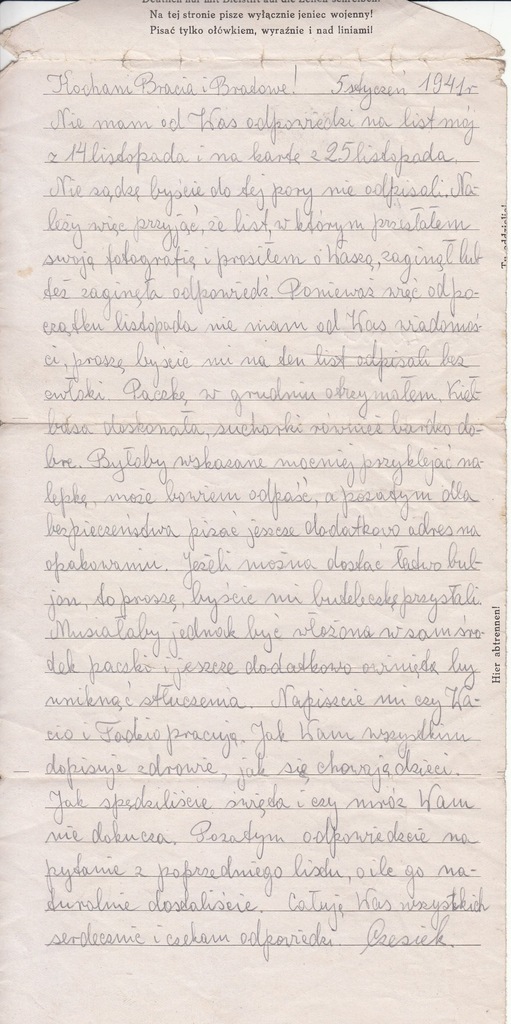 Deutlich nur mit Bleistift auf die Zeilen schreiben!
Na tej stronie pisze wyłącznie jeniec wojenny!
Pisać tylko ołówkiem, wyraźnie i nad liniami!
Kochani Bracia i Bratowe! 5 styczeń 1941 r
Nie mam od Was odpowiedzi na list mój
z 14 listopada i na kartę z 25 listopada.
Nie sądzę byście do tej pory nie odpisali. Na-
leży więc przyjąć, że list, w którym przesłałem
swoją fotografię i prosiłem o Waszą, zaginął lub
też zaginęła odpowiedź. Ponieważ więc od po-
czątku listopada nie mam od Was wiadomoś-
ci, proszę byście mi na ten list odpisali bez
zwłoki. Paczkę w grudniu otrzymałem. Kieł-
basa doskonała, sucharki również bardzo do-
bre. Byłoby wskazane mocniej przyklejać na-
lepkę, może bowiem odpaść, a pozatym dla
bezpieczeństwa pisać jeszcze dodatkowo adres na
opakowaniu. Jeżeli można dostać łatwo bul-
jon, to proszę, byście mi buteleczkę przysłali.
Musiałaby jednak być włożona w sam śro-
dek paczki i jeszcze dodatkowo owinięta by
uniknąć stłuczenia. Napiszcie mi czy Wa-
cio i Tadzio pracują. Jak Wam wszystkim
dopisuje zdrowie, jak się chowają dzieci.
Jak spędziliście święta i czy mróz Wam
nie dokucza. Pozatym odpowiedzcie na
pytanie z poprzedniego listu, o ile go na-
turalnie dostaliście. Całuję Was wszystkich
serdecznie i czekam odpowiedzi. Czesiek.
Hier abtrennen!